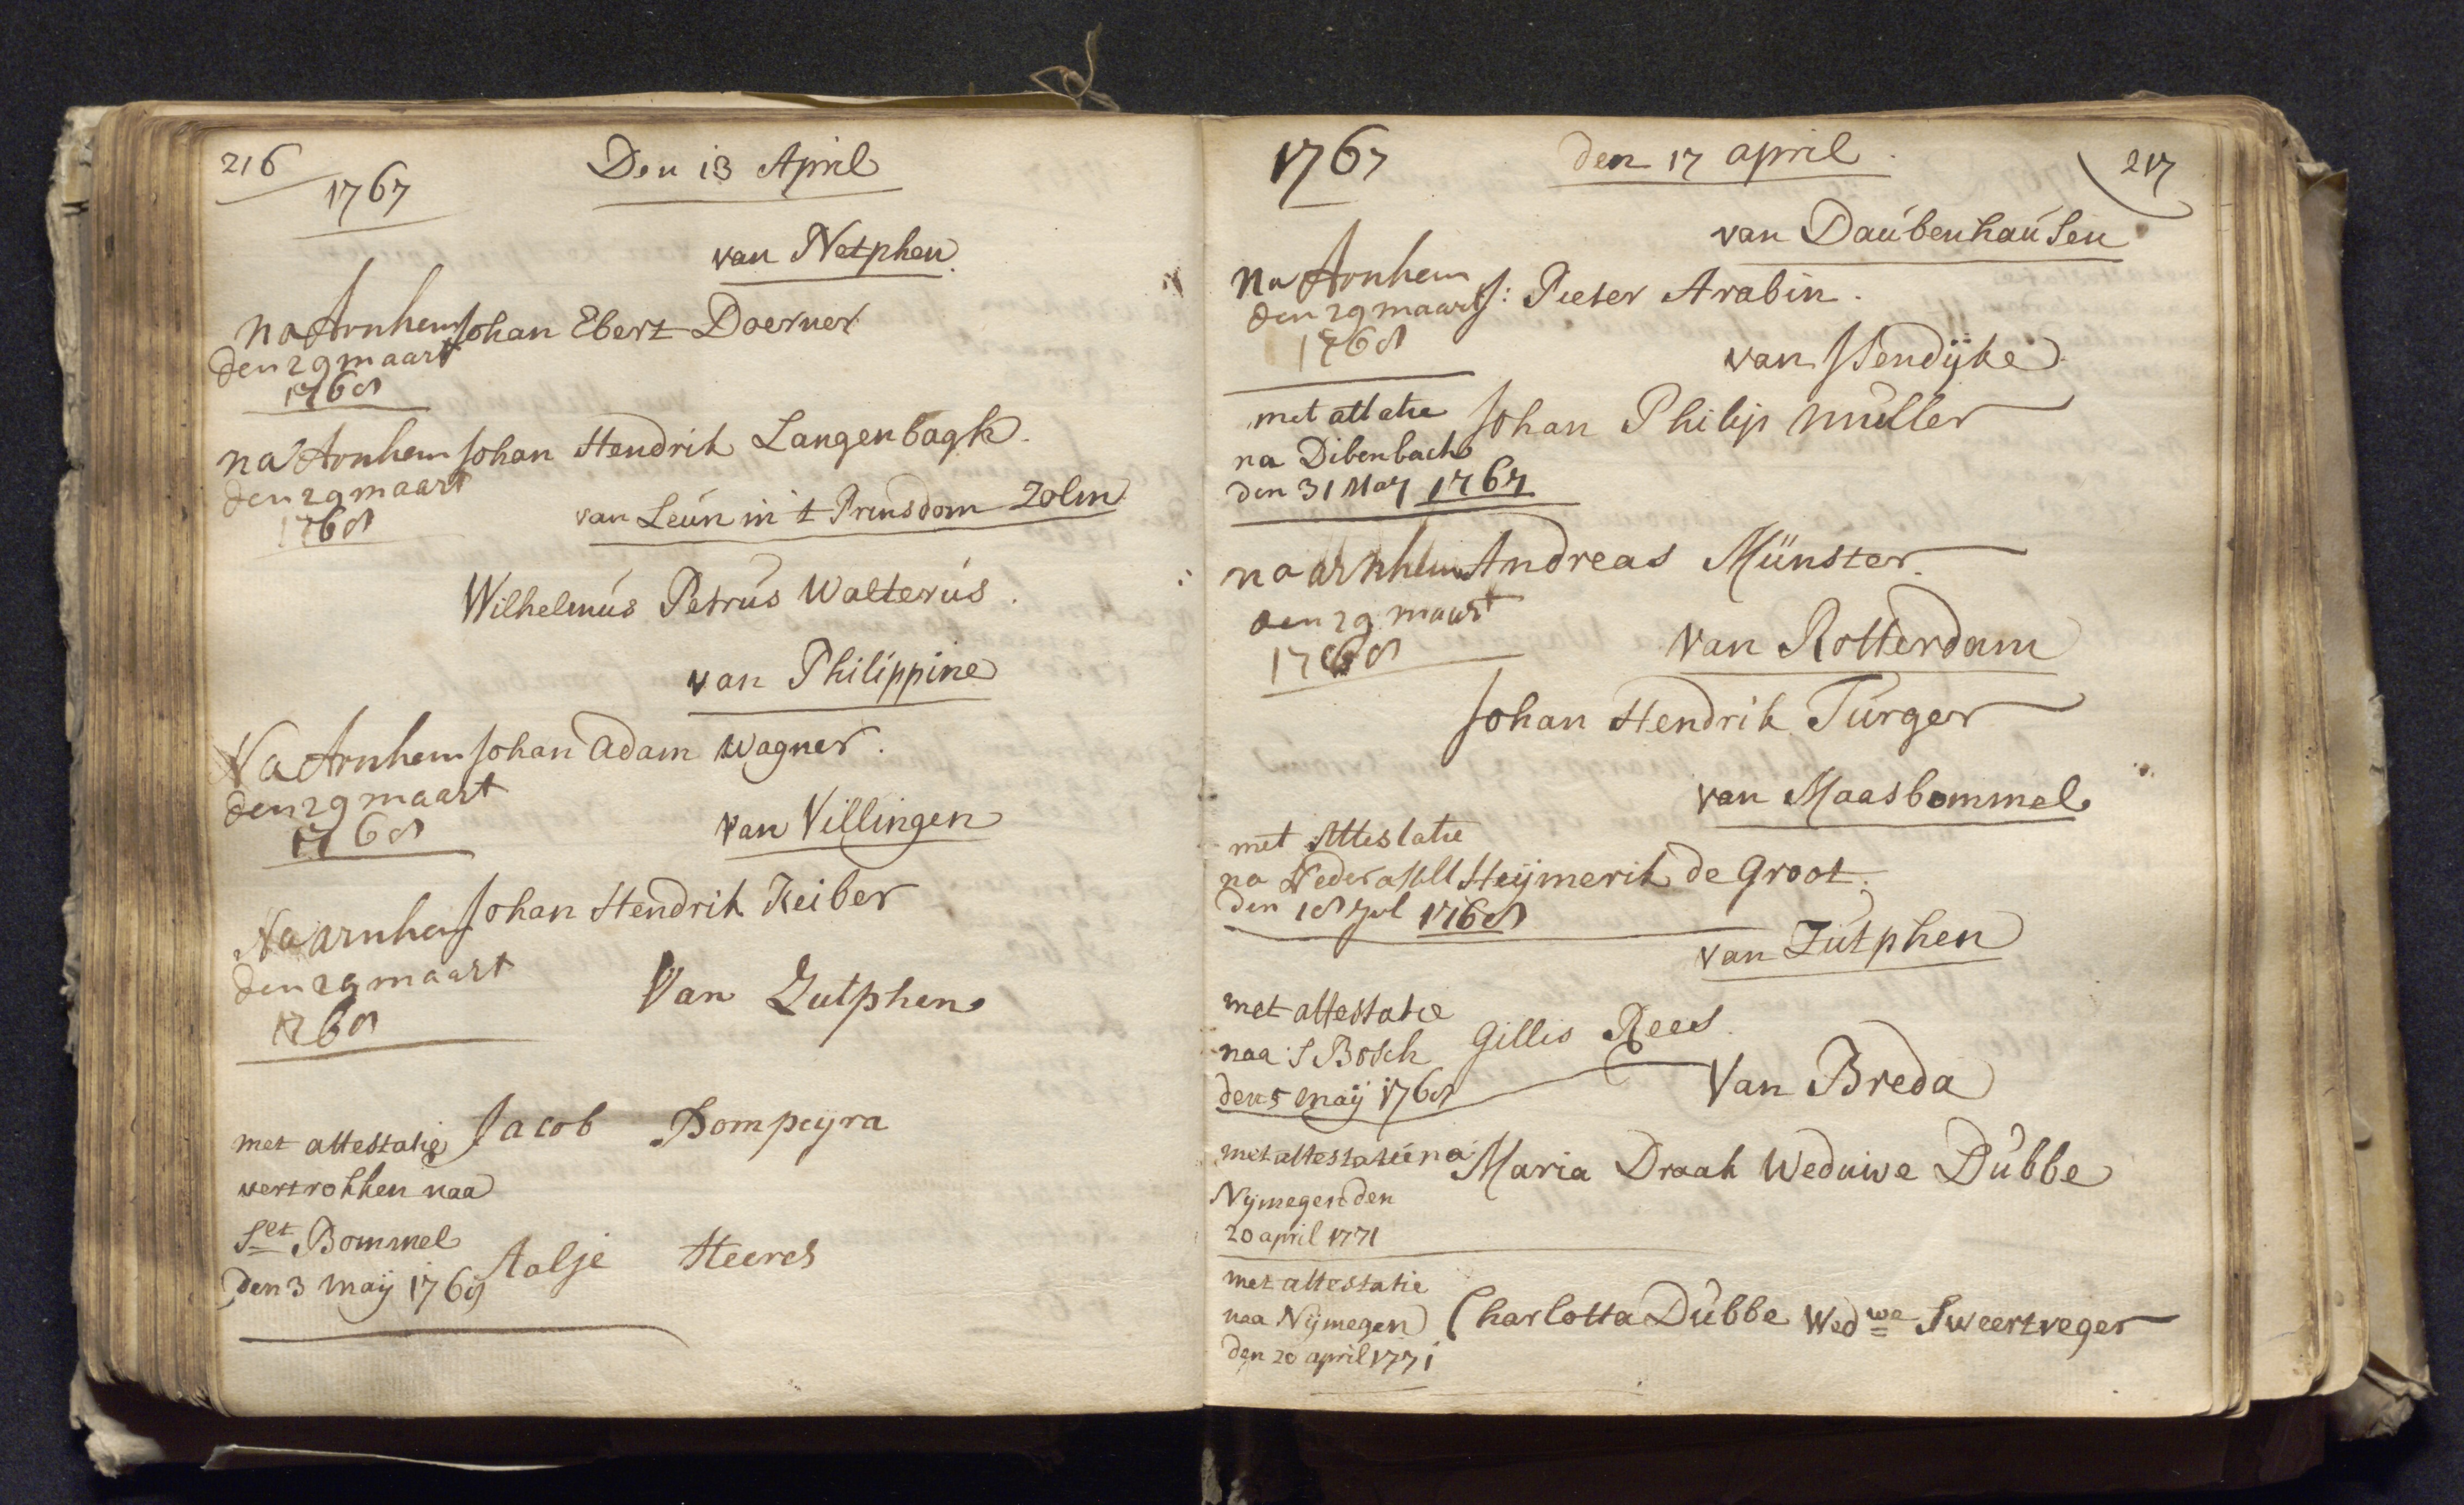 216
1767
Den 13 April
van Netphen
na Arnhem Johan Ebert Doerner
den 29 maart
1768
na Arnhem Johan Hendrik Langenbagk.
den 29 maart
1768
van Leún in 't Prinsdom Zolm
Wilhelmús Petrús Walterús.
van Philippine
Na Arnhem Johan Adam Wagner.
den 29 maart
1768
van Villingen
Na arnhe Johan Hendrik Keiber
den 29 maart
1768
Van Zutphen
met attestatie Jacob Dompeyra
vertrokken naa
Set Bommel
den 3 maij 1769
Aalje Heeres
1767
den 17 april.
217
van Daúbenhaúsen
Na Arnhem
den 29 maart J: Pieter Arabin.
1768
van IJsendijke
met attatie Johan Philip Muller
na Dibenbach
den 31 May 1767
na arnhem Andreas Münster.
den 29 maart
1768
van Rotterdam
Johan Hendrik Túrger
van Maasbommel
met Attestatie
na Nederasselt Heijmerik de Groot.
den 18 Jul 1768
van Zútphen
met attestatie
naa S Bosch Gillis Rees.
den 5 maij 1768
Van Breda
met attestatie na Maria Draak Weduwe Dúbbe
Nijmegen den
20 april 1771
met attestatie
naa Nijmegen Charlotta Dúbbe Wedwe Sweertveger
den 20 april 1771